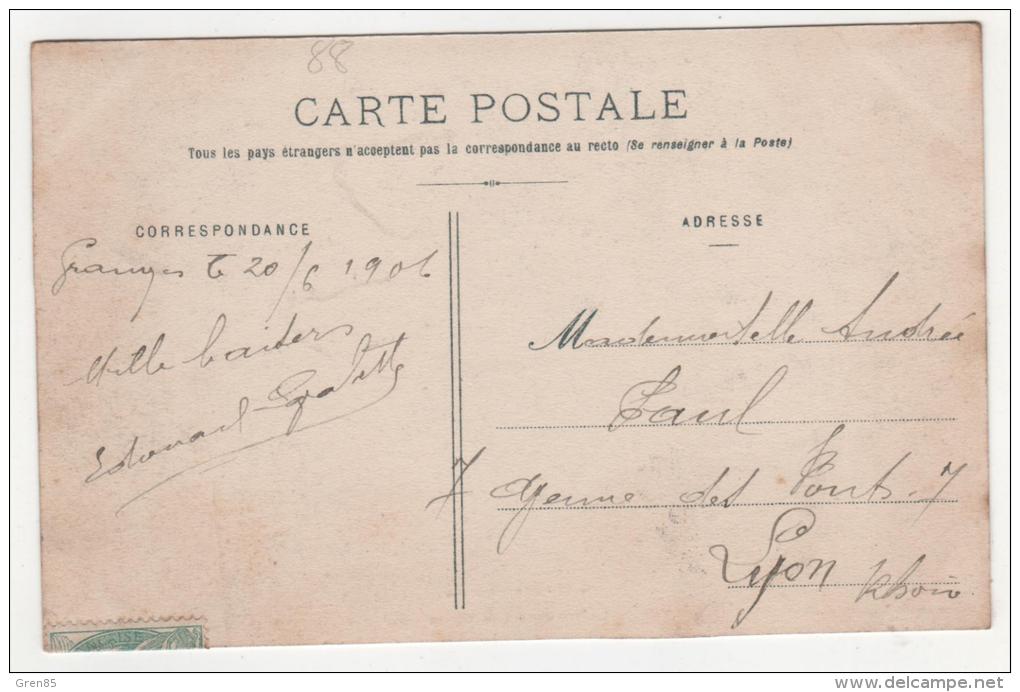 88
CARTE POSTALE
Tous les pays étrangers n'acceptent pas la correspondance au recto (Se renseigner à la Poste)
CORRESPONDANCE
Granges le 20/6 1906
Mille baisers
Edouard
ADRESSE
Mademoiselle Andrée
Paul
7 Avenue des Ponts 7
Lyon
Rhône
ÇAISE
Gren85
www.delcampe.net